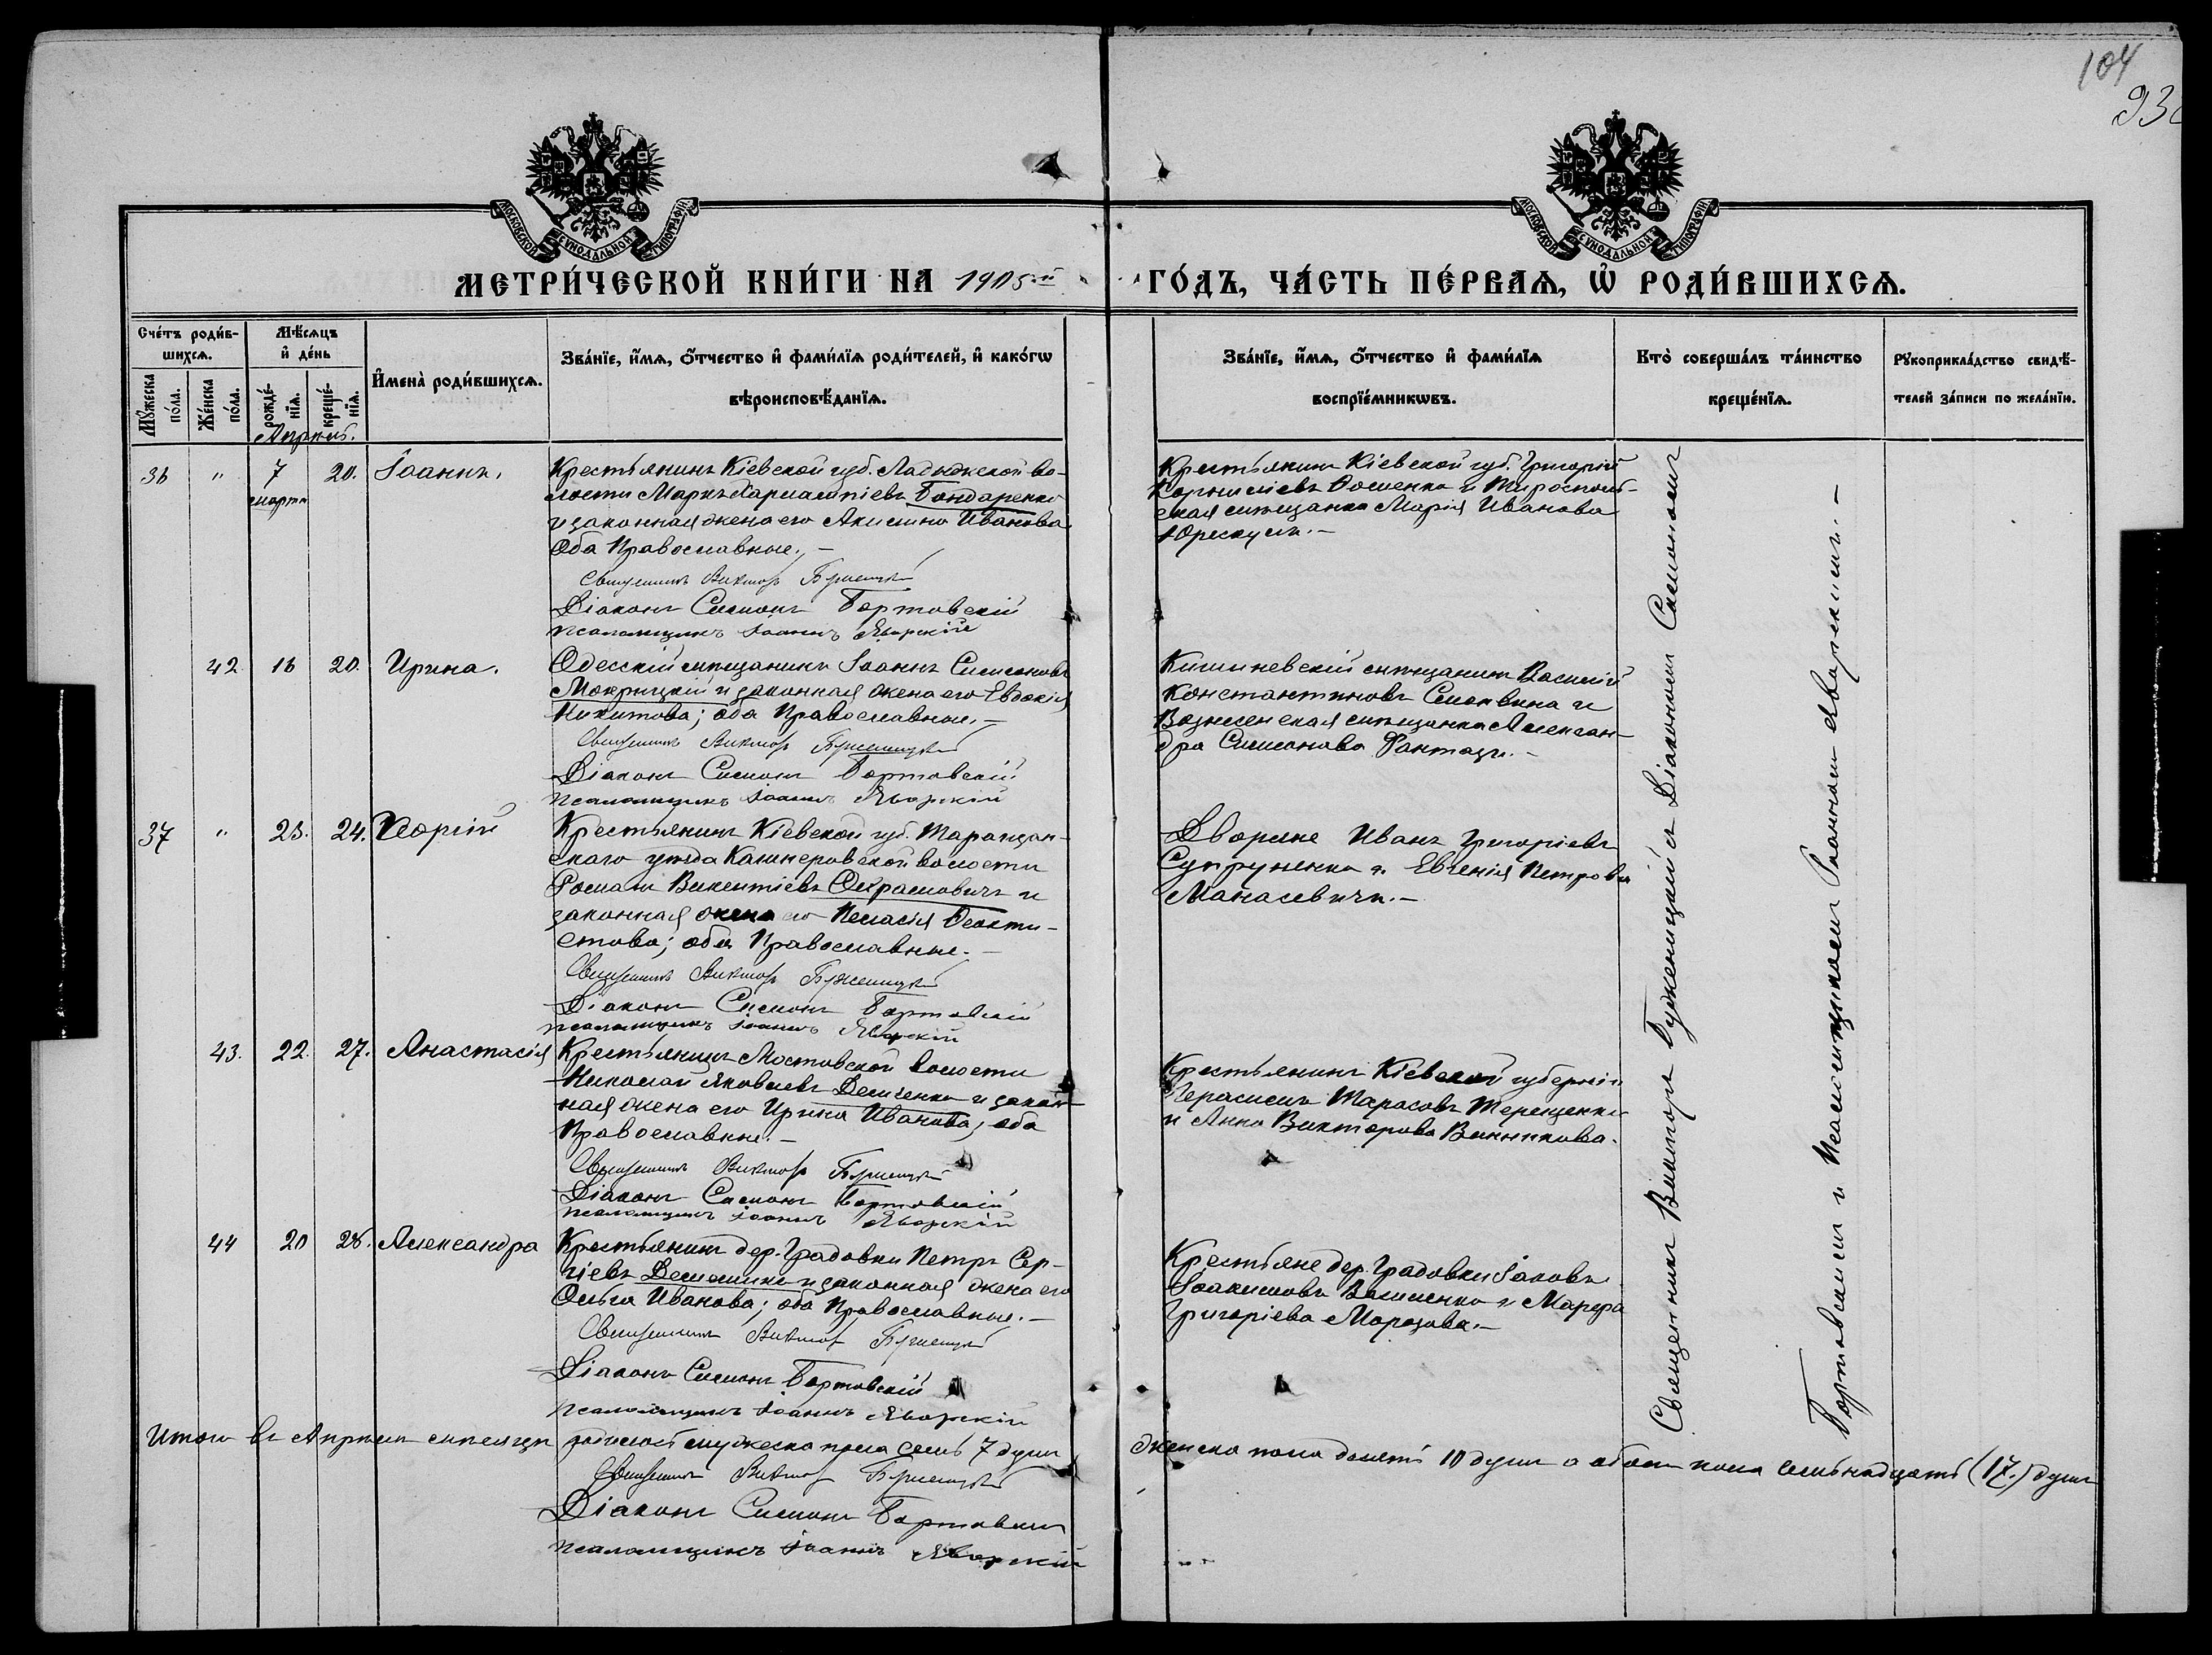 104
МОСКОВСКОЙ СУНОДАЛЬНОЙ ТИПОГРАФІИ
МОСКОВСКОЙ СУНОДАЛЬНОЙ ТИПОГРАФІИ
МЕТРИ́ЧЕСКОЙ КНИ́ГИ НА 1905й ГО́ДЪ, ЧА́СТЬ ПЕ́РВАѦ, Ѡ҆ РОДИ́ВШИХСѦ.
Сче́тъ роди́в-
шихсѧ.
Мꙋ́жеска по́ла.
Же́нска по́ла.
Мѣ́сѧцъ
и҆ де́нь
рожде́-
нїѧ.
креще́-
нїѧ.
И҆мена̀ роди́вшихсѧ.
Зва́нїе, и҆́мѧ, о҆́тчество и҆ фами́лїѧ роди́телей, и҆ како́гѡ
вѣроисповѣ́данїѧ.
Зва́нїе, и҆́мѧ, о҆́тчество и҆ фами́лїѧ
воспрїе́мникѡвъ.
Кто̀ соверша́лъ та́инство
креще́нїѧ.
Рꙋкоприкла́дство свидѣ́-
телей за́писи по жела́нїю.
Апрѣль.
36 " 7 марта 20. Іоаннъ.
Крестьянинъ Кіевской губ. Ладыжской во-
лости Маркъ Харлампіевъ Бондаренко
и законная жена его Акилина Иванова
Оба Православные. –
Священникъ Викторъ Буженицкій
Діаконъ Симонъ Бортовскій
псаломщикъ Іоаннъ Яворскій
Крестьянинъ Кіевской губ. Григорій
Корниліевъ и Тирасполь-
ская мѣщанка Марія Иванова
42 16 20. Ирина.
Одесскій мѣщанинъ Іоаннъ Симеоновъ
Мокрицкій и законная жена его Евдокія
Никитова; оба Православные. –
Священникъ Викторъ Буженицкій
Діаконъ Симонъ Бортовскій
псаломщикъ Іоаннъ Яворскій
Кишиневскій мѣщанинъ Василій
Константиновъ и
Вознесенская мѣщанка Алексан-
дра Симонова
37 " 23. 24. Георгій
Крестьянинъ Кіевской губ. Таращан-
скаго уѣзда волости
Романъ Викентіевъ и
законная жена его Пелагія Ѳеокти-
стова; оба Православные. –
Священникъ Викторъ Буженицкій
Діаконъ Симонъ Бортовскій
псаломщикъ Іоаннъ Яворскій
Дворяне Иванъ Григоріевъ
Супруненко и Евгенія Петрова
Манасевичъ. –
43. 22. 27. Анастасія
Крестьянинъ Мостовской волости
Николай Яковлевъ Демченко и закон-
ная жена его Ирина Иванова; оба
Православные. –
Священникъ Викторъ Буженицкій
Діаконъ Симонъ Бортовскій
псаломщикъ Іоаннъ Яворскій
Крестьянинъ Кіевской губерніи
Герасимъ Тарасовъ Терещенко
и Анна Викторова Винникова.
44 20 28. Александра
Крестьянинъ дер. Градовки Петръ Сер-
гіевъ и законная жена его
Ольга Иванова; оба Православные. –
Священникъ Викторъ Буженицкій
Діаконъ Симонъ Бортовскій
псаломщикъ Іоаннъ Яворскій
Крестьяне дер. Градовки Іаковъ
Іоакимовъ и Марфа
Григоріева Морозова. –
Священникъ Викторъ Буженицкій съ Діакономъ Симономъ
Бортовскимъ и Псаломщикомъ Іоанномъ Яворскимъ. –
Итого въ Апрѣлѣ мѣсяцѣ родилось мужеска пола семь 7 душъ
женска пола десять 10 душъ а обоего пола семьнадцать (17.) душъ
Священникъ Викторъ Буженицкій
Діаконъ Симонъ Бортовскій
псаломщикъ Іоаннъ Яворскій